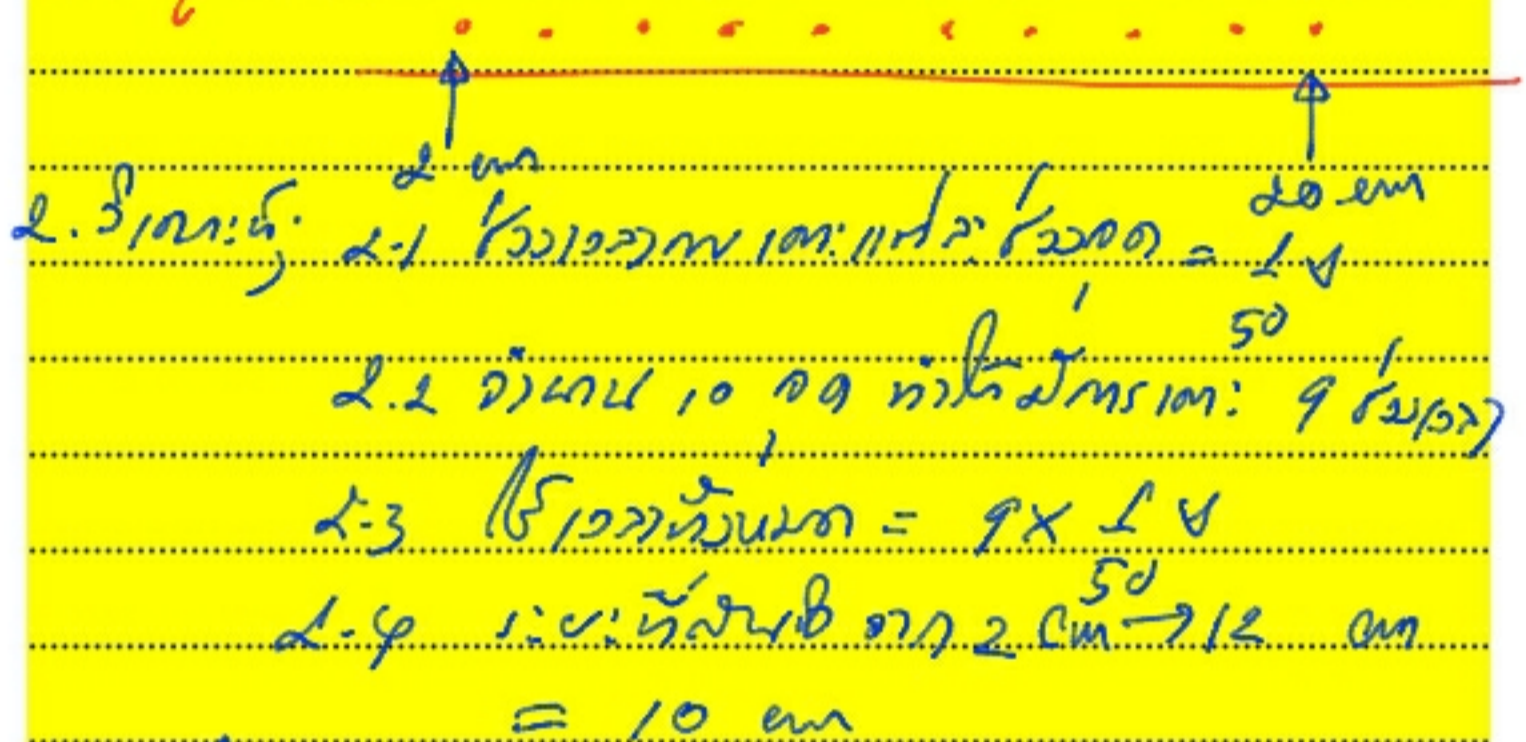 2 cm
20 cm
2. วิเคราะห์ 2.1 ช่วงเวลาการเคาะแต่ละช่วงจุด = 1 s
50
2.2 จำนวน 10 จุด ทำให้มีการเคาะ 9 ช่วงเวลา
2.3 ใช้เวลาทั้งหมด = 9 × 1 s
50
2.4 ระยะที่ จาก 2 cm → 12 cm
= 10 cm